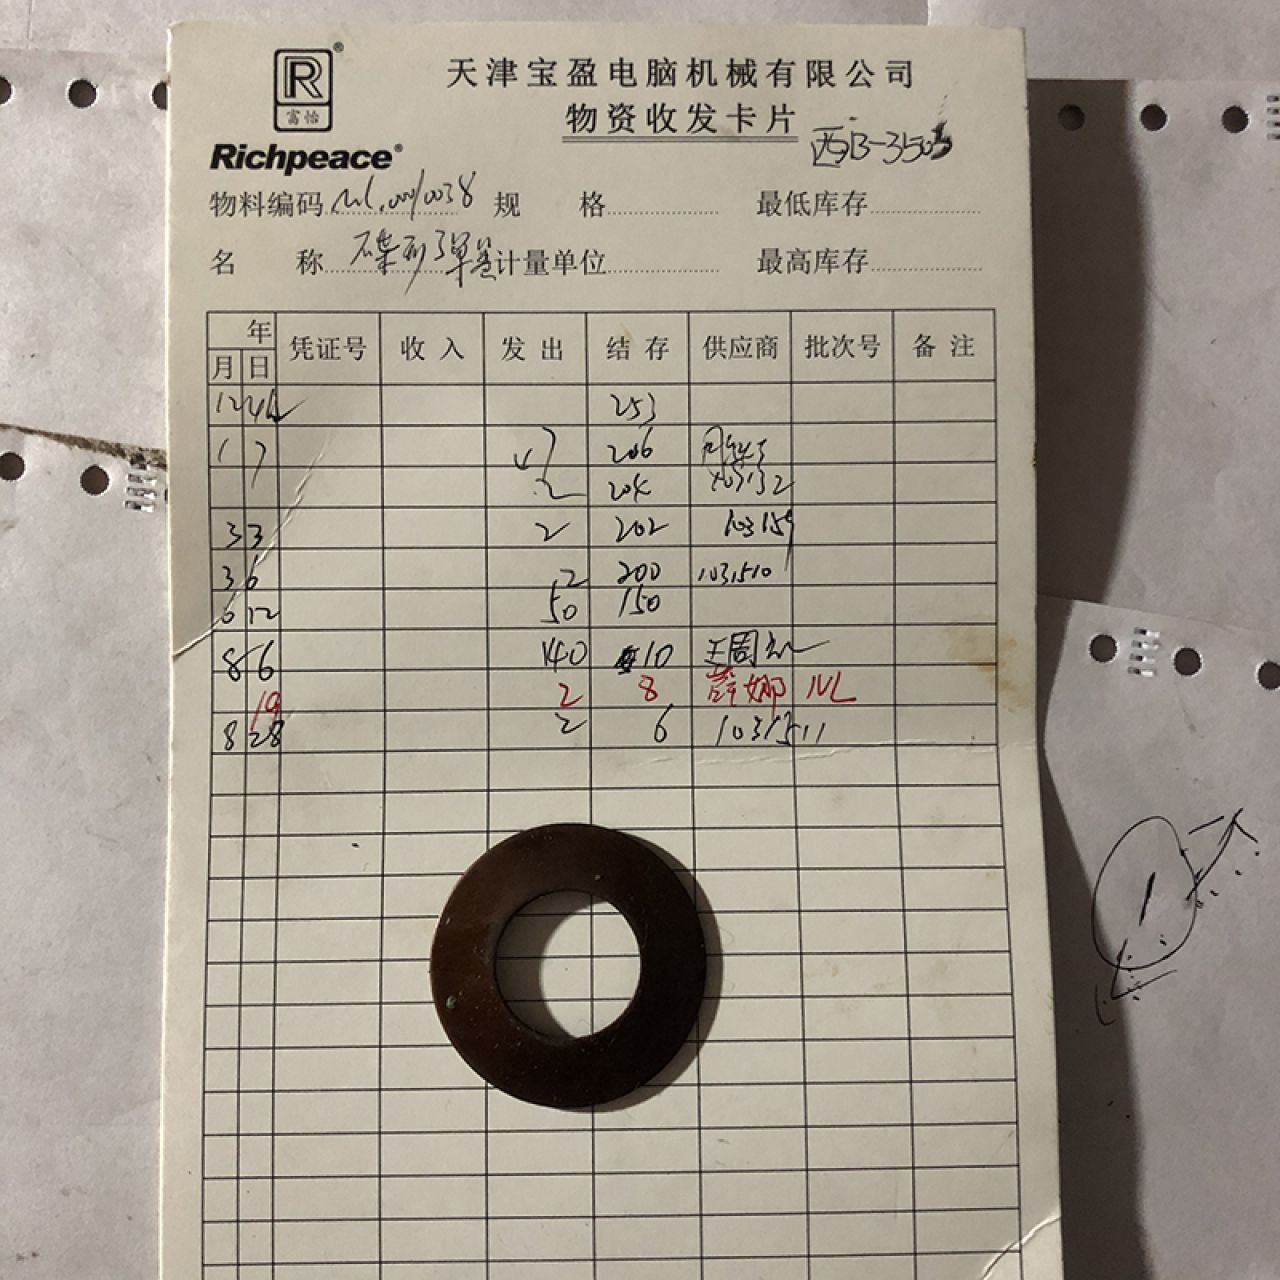 R®
富怡
Richpeace®
天津宝盈电脑机械有限公司
物资收发卡片
西B-3503
物料编码 规 格 最低库存
名 称 碟形弹簧 计量单位 最高库存
年
月 日 凭证号 收入 发出 结存 供应商 批次号 备注
12 253
1 7 47 206
2 204
3 3 2 202 103159
3 6 2 200 1031510
6 12 50 150
8 6 140 10
19 2 8 薛娜
8 28 2 6 1031511